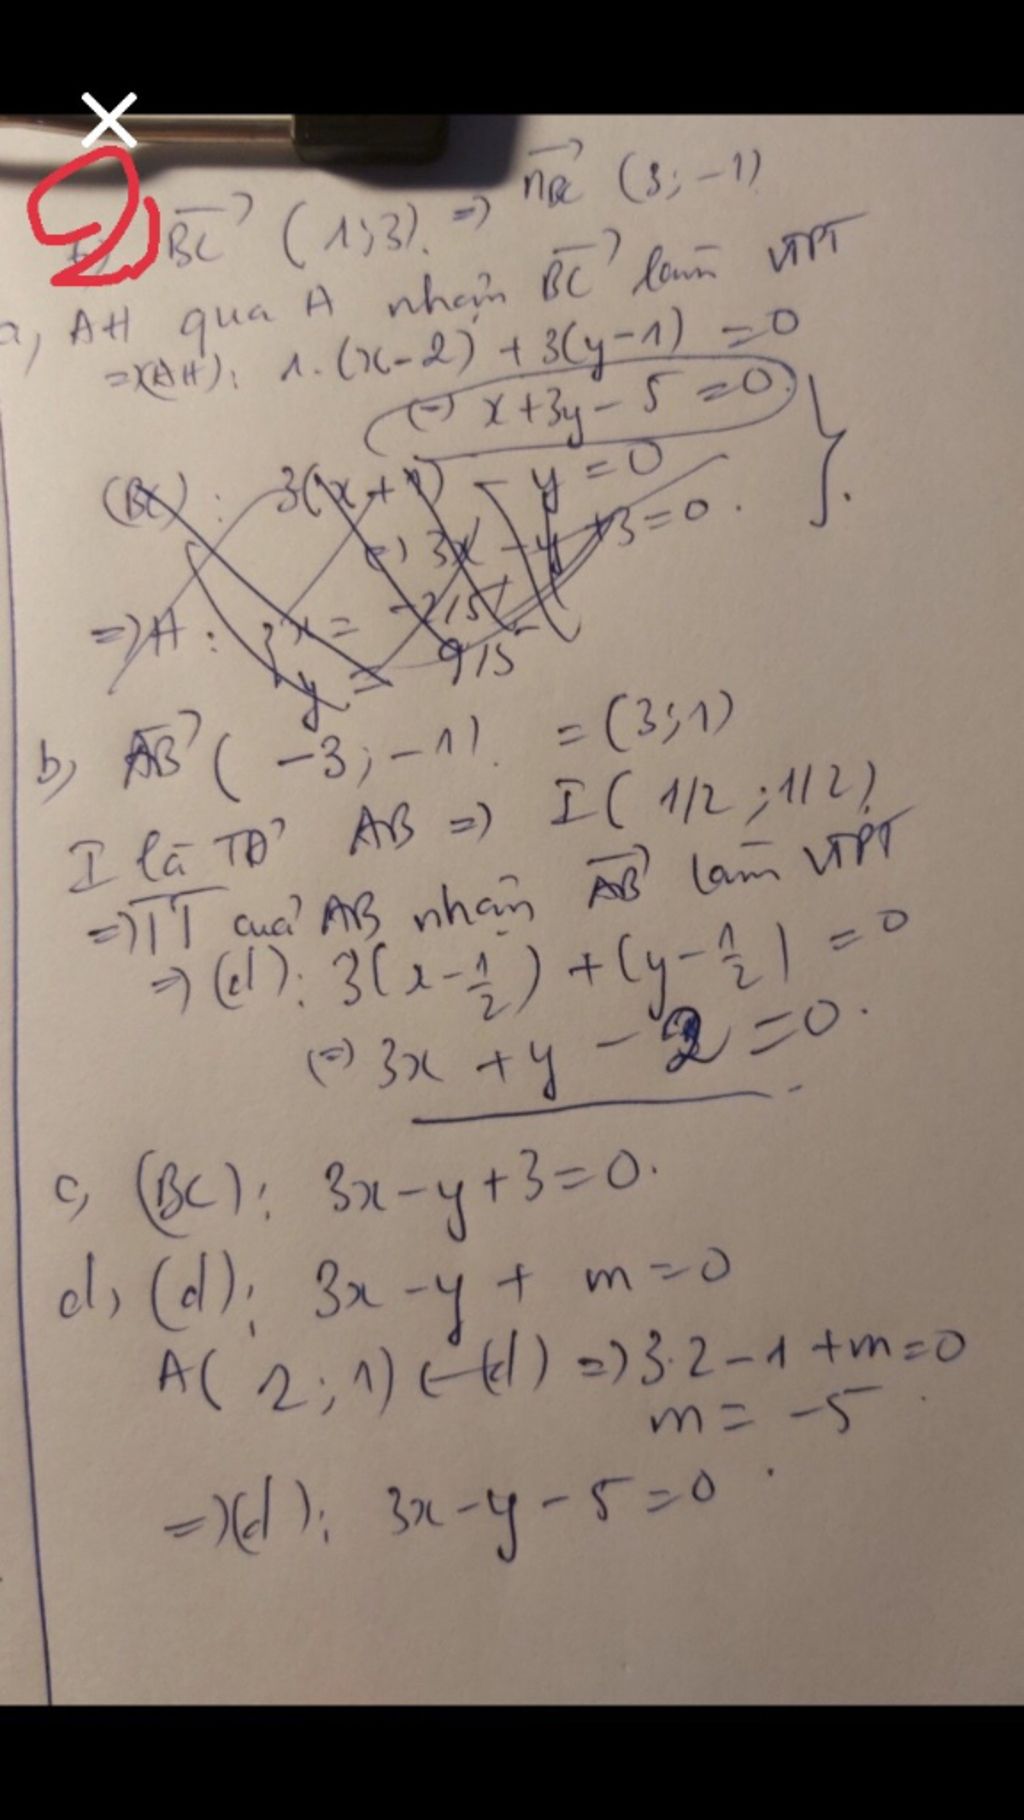 2)
BC→ (1;3). => nBC→ (3;-1)
a, AH qua A nhận BC→ làm VTPT
=>(AH): 1.(x-2) + 3(y-1) = 0
(=) x+3y-5=0.
(BC): 3(x+1) - y = 0
(=) 3x - y + 3 = 0.
=>H: x = -2/5
y = 9/5
b, AB→ (-3;-1). = (3;1)
I là TĐ AB => I(1/2;1/2)
=> TT của AB nhận AB→ làm VTPT
=> (d): 3(x-1/2) + (y-1/2) = 0
(=) 3x + y - 2 = 0.
c, (BC): 3x-y+3=0.
d, (d): 3x-y+ m=0
A(2;1) ∈ (d) =>3.2-1+m=0
m= -5
=>(d): 3x-y-5=0